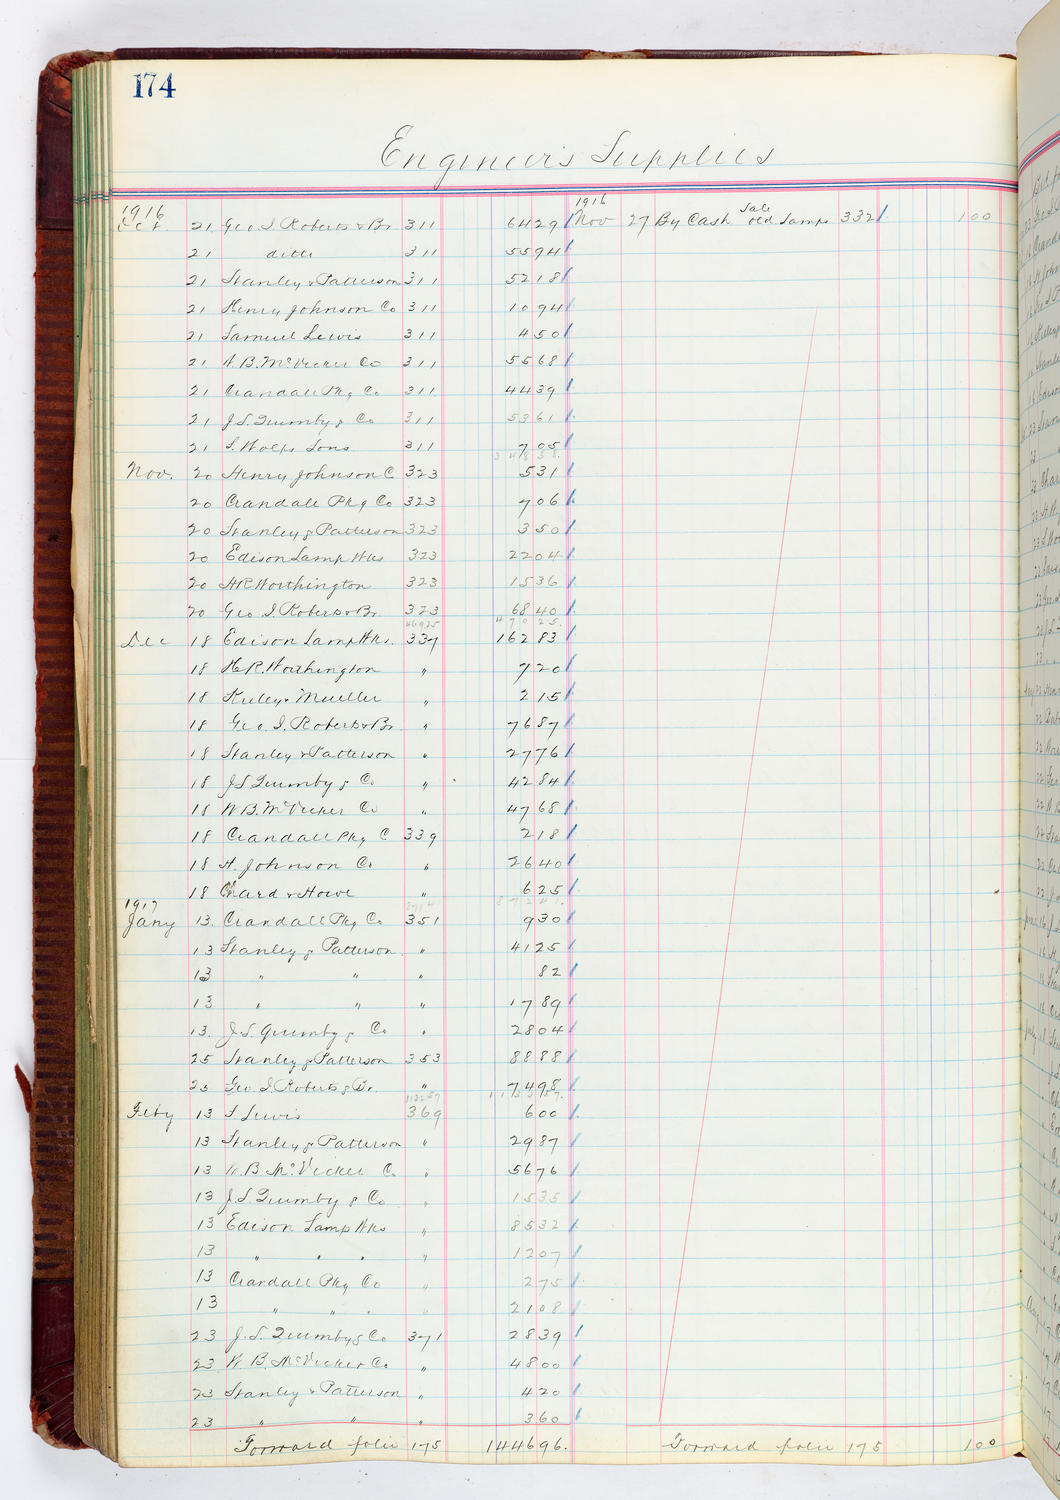 174
Engineer's Supplies
1916
Oct 21 Geo. I. Roberts & Br 311 6429
21 ditto 311 5594
21 Stanley & Patterson 311 5218
21 Henry Johnson Co 311 1094
21 Samuel Lewis 311 450
21 W. B. McVicker Co 311 5568
21 Crandall Pkg Co 311 4439
21 J. S. Quimby & Co 311 5361
21 S. Wolfs Sons 311 705
34858.
Nov. 20 Henry Johnson C 323 531
20 Crandall Pkg Co 323 706
20 Stanley & Patterson 323 350
20 Edison Lamp Wks 323 2204
20 H R Worthington 323 1536
20 Geo I. Roberts & Br. 323 6840
46925 47025.
Dec 18 Edison Lamp Wks. 337 16283
18 H. R. Worthington " 720
18 Keeley & Mueller " 215
18 Geo. I. Roberts & Br. " 7687
18 Stanley & Patterson " 2776
18 J S Quimby & Co " 4284
18 W B. McVicker Co " 4768
18 Crandall Pkg C 339 218
18 H. Johnson Co. " 2640
18 Chard & Howe " 625
87241 87241.
1917
Jany 13. Crandall Pkg Co 351 930
13 Stanley & Patterson " 4125
13 " " " 82
13 " " " 1789
13. J. S. Quimby & Co " 2804
25 Stanley & Patterson 353 8888
25 Geo. I. Roberts & Br. " 7498
113357 113357.
Feby 13 S Lewis 369 600
13 Stanley & Patterson " 2987
13 W. B. McVicker C. " 5676
13 J. S. Quimby & Co " 1535
13 Edison Lamp Wks " 8532
13 " " " " 1207
13 Crandall Pkg Co " 275
13 " " " " 2108
23 J. S. Quimby & Co 371 2839
23 W. B. McVicker Co " 4800
23 Stanley & Patterson " 420
23 " " " 360
Forward folio 175 144696.
1916
Nov 27 By Cash Sale old Lamps 332 100
Forward folio 175 100